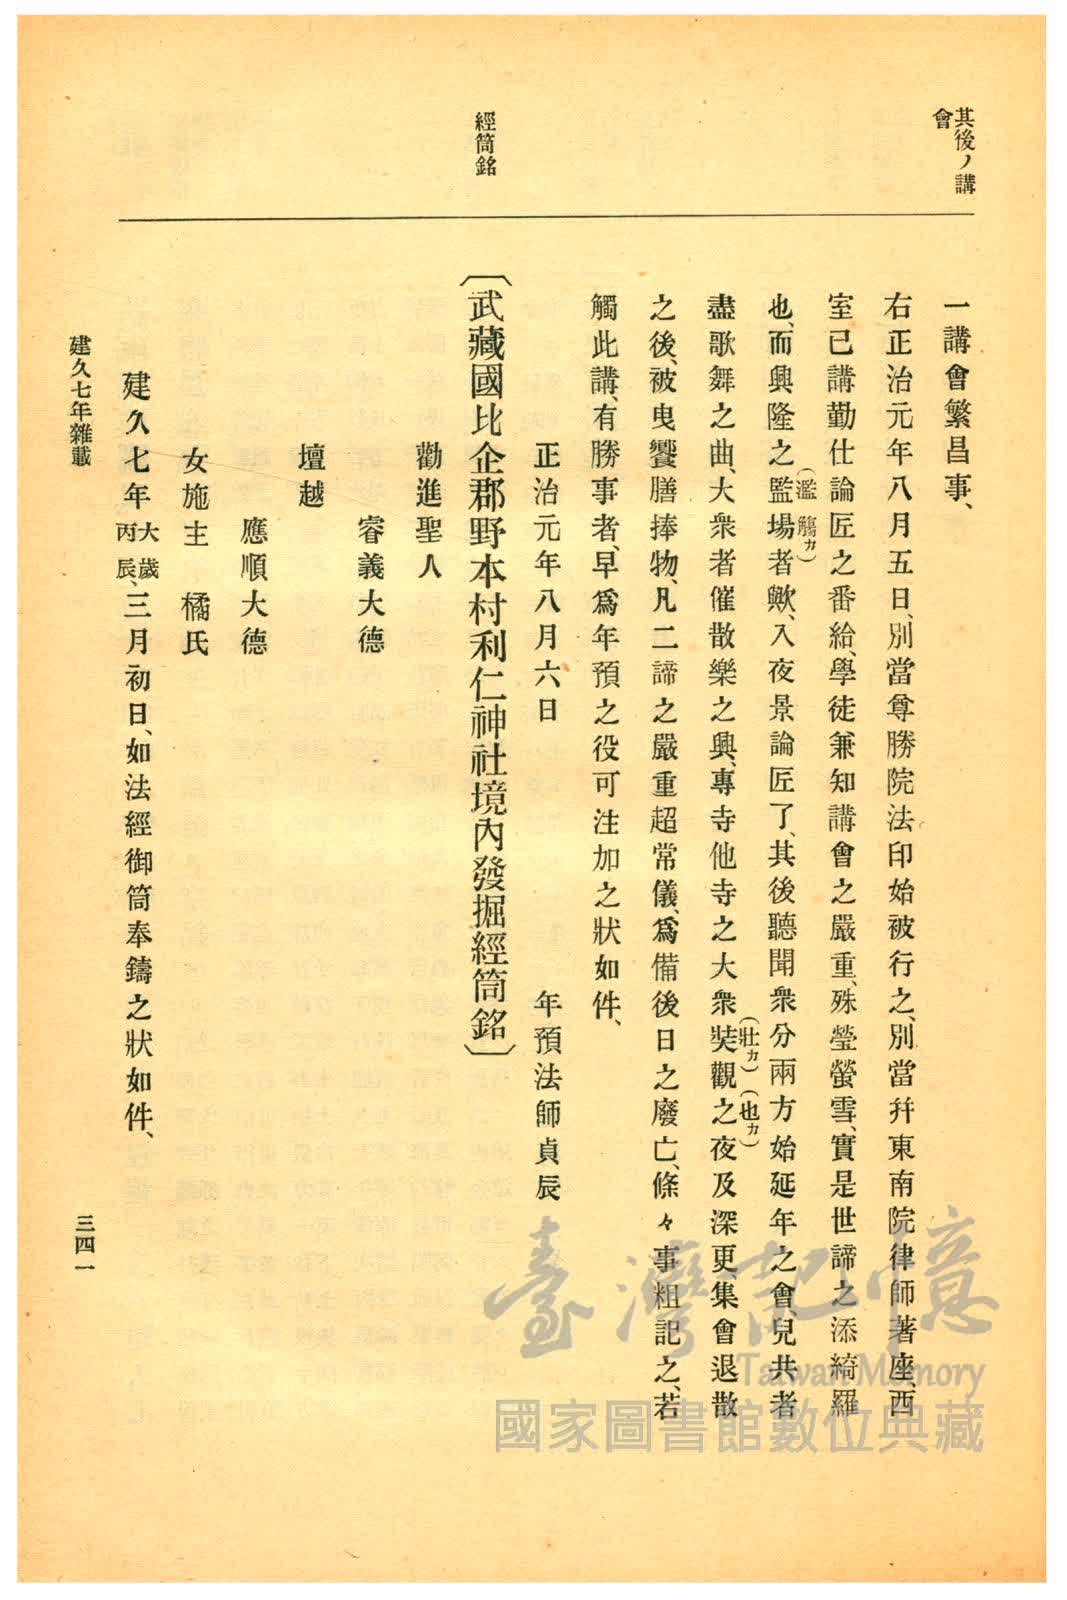 其後ノ講
會
一講會繁昌事、
右正治元年八月五日、別當尊勝院法印始被行之、別當幷東南院律師著座、西
室已講勤仕論匠之番給、學徒兼知講會之嚴重、殊瑩螢雪、實是世諦之添綺羅
(濫觴カ)
也、而興隆之監場者歟、入夜景論匠了、其後聽聞衆分兩方始延年之會、兒共者
盡歌舞之曲、大衆者催散樂之興、專寺他寺之大衆裝觀之夜及深更、集會退散
(壯カ)(也カ)
之後、被曳饗膳捧物、凡二諦之嚴重超常儀、爲備後日之廢亡、條々事粗記之、若
觸此講、有勝事者、早爲年預之役可注加之狀如件、
正治元年八月六日
年預法師貞辰
經筒銘
〔武藏國比企郡野本村利仁神社境內發掘經筒銘〕
勸進聖人
睿義大德
壇越
應順大德
女施主 橘氏
建久七年大歲丙辰、三月初日、如法經御筒奉鑄之狀如件、
建久七年雜載
三四一
臺灣記憶
Taiwan Memory
國家圖書館數位典藏